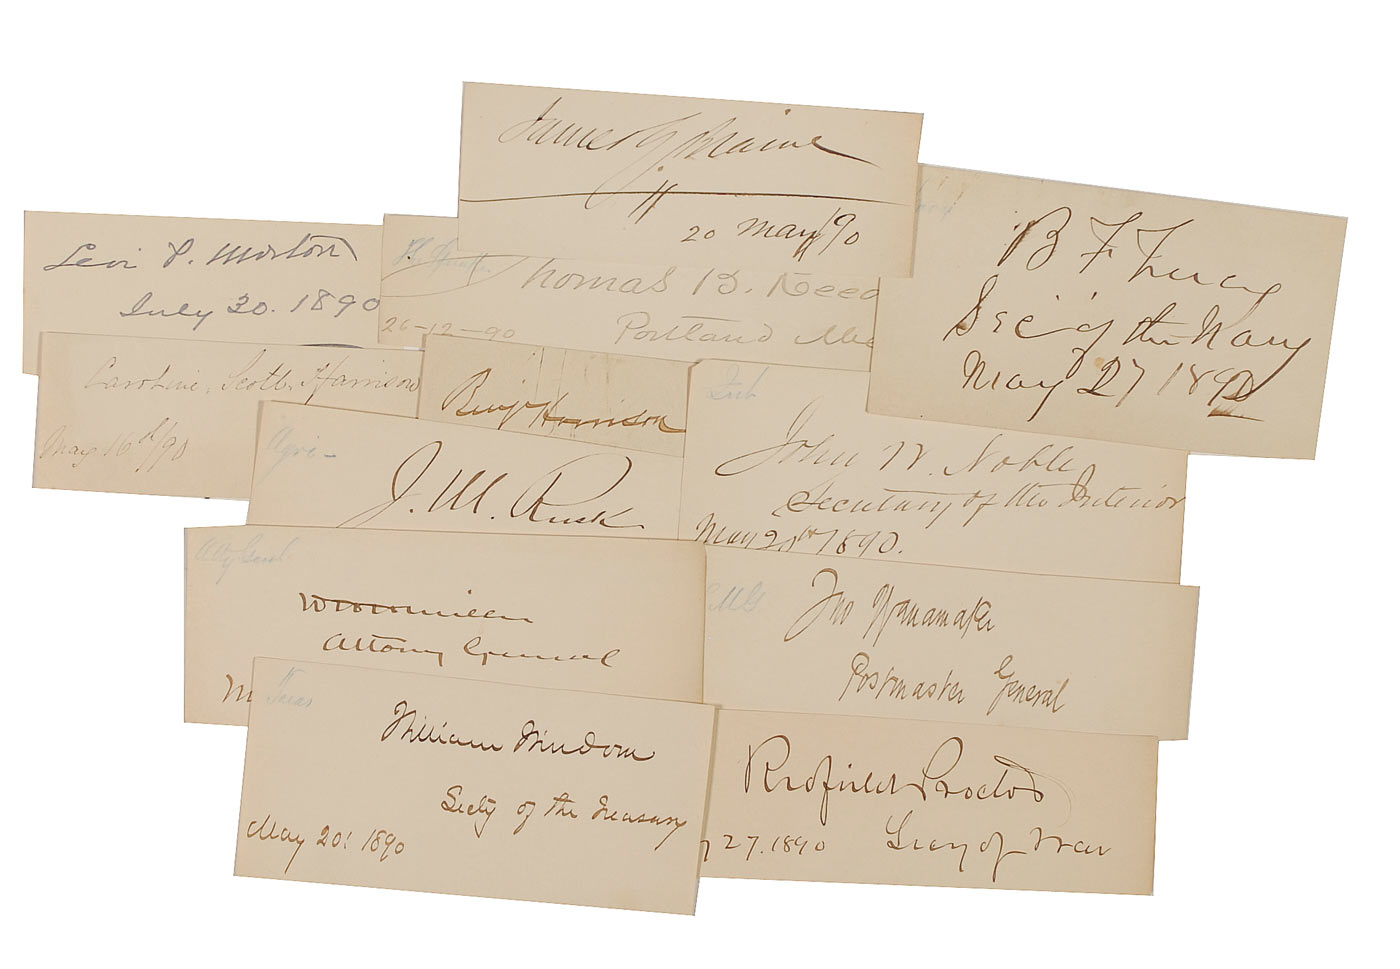 James G. Blaine
20 May / 90
B F Tracy
Sec'y of the Navy
May 27 1890
Levi P. Morton
July 30. 1890
Thomas B. Reed
Portland Me
26-12-90
Caroline Scott Harrison
May 16th/90
Benj Harrison
Agri-
J. M. Rusk
Int
John W. Noble
Secretary of the Interior
May 20th 1890.
Atty Genl.
W H H Miller
Attorney General
M
PMG
Jno Wanamaker
Postmaster General
Treas
William Windom
Secty of the Treasury
May 20! 1890
Redfield Proctor
27. 1890 Secy of War